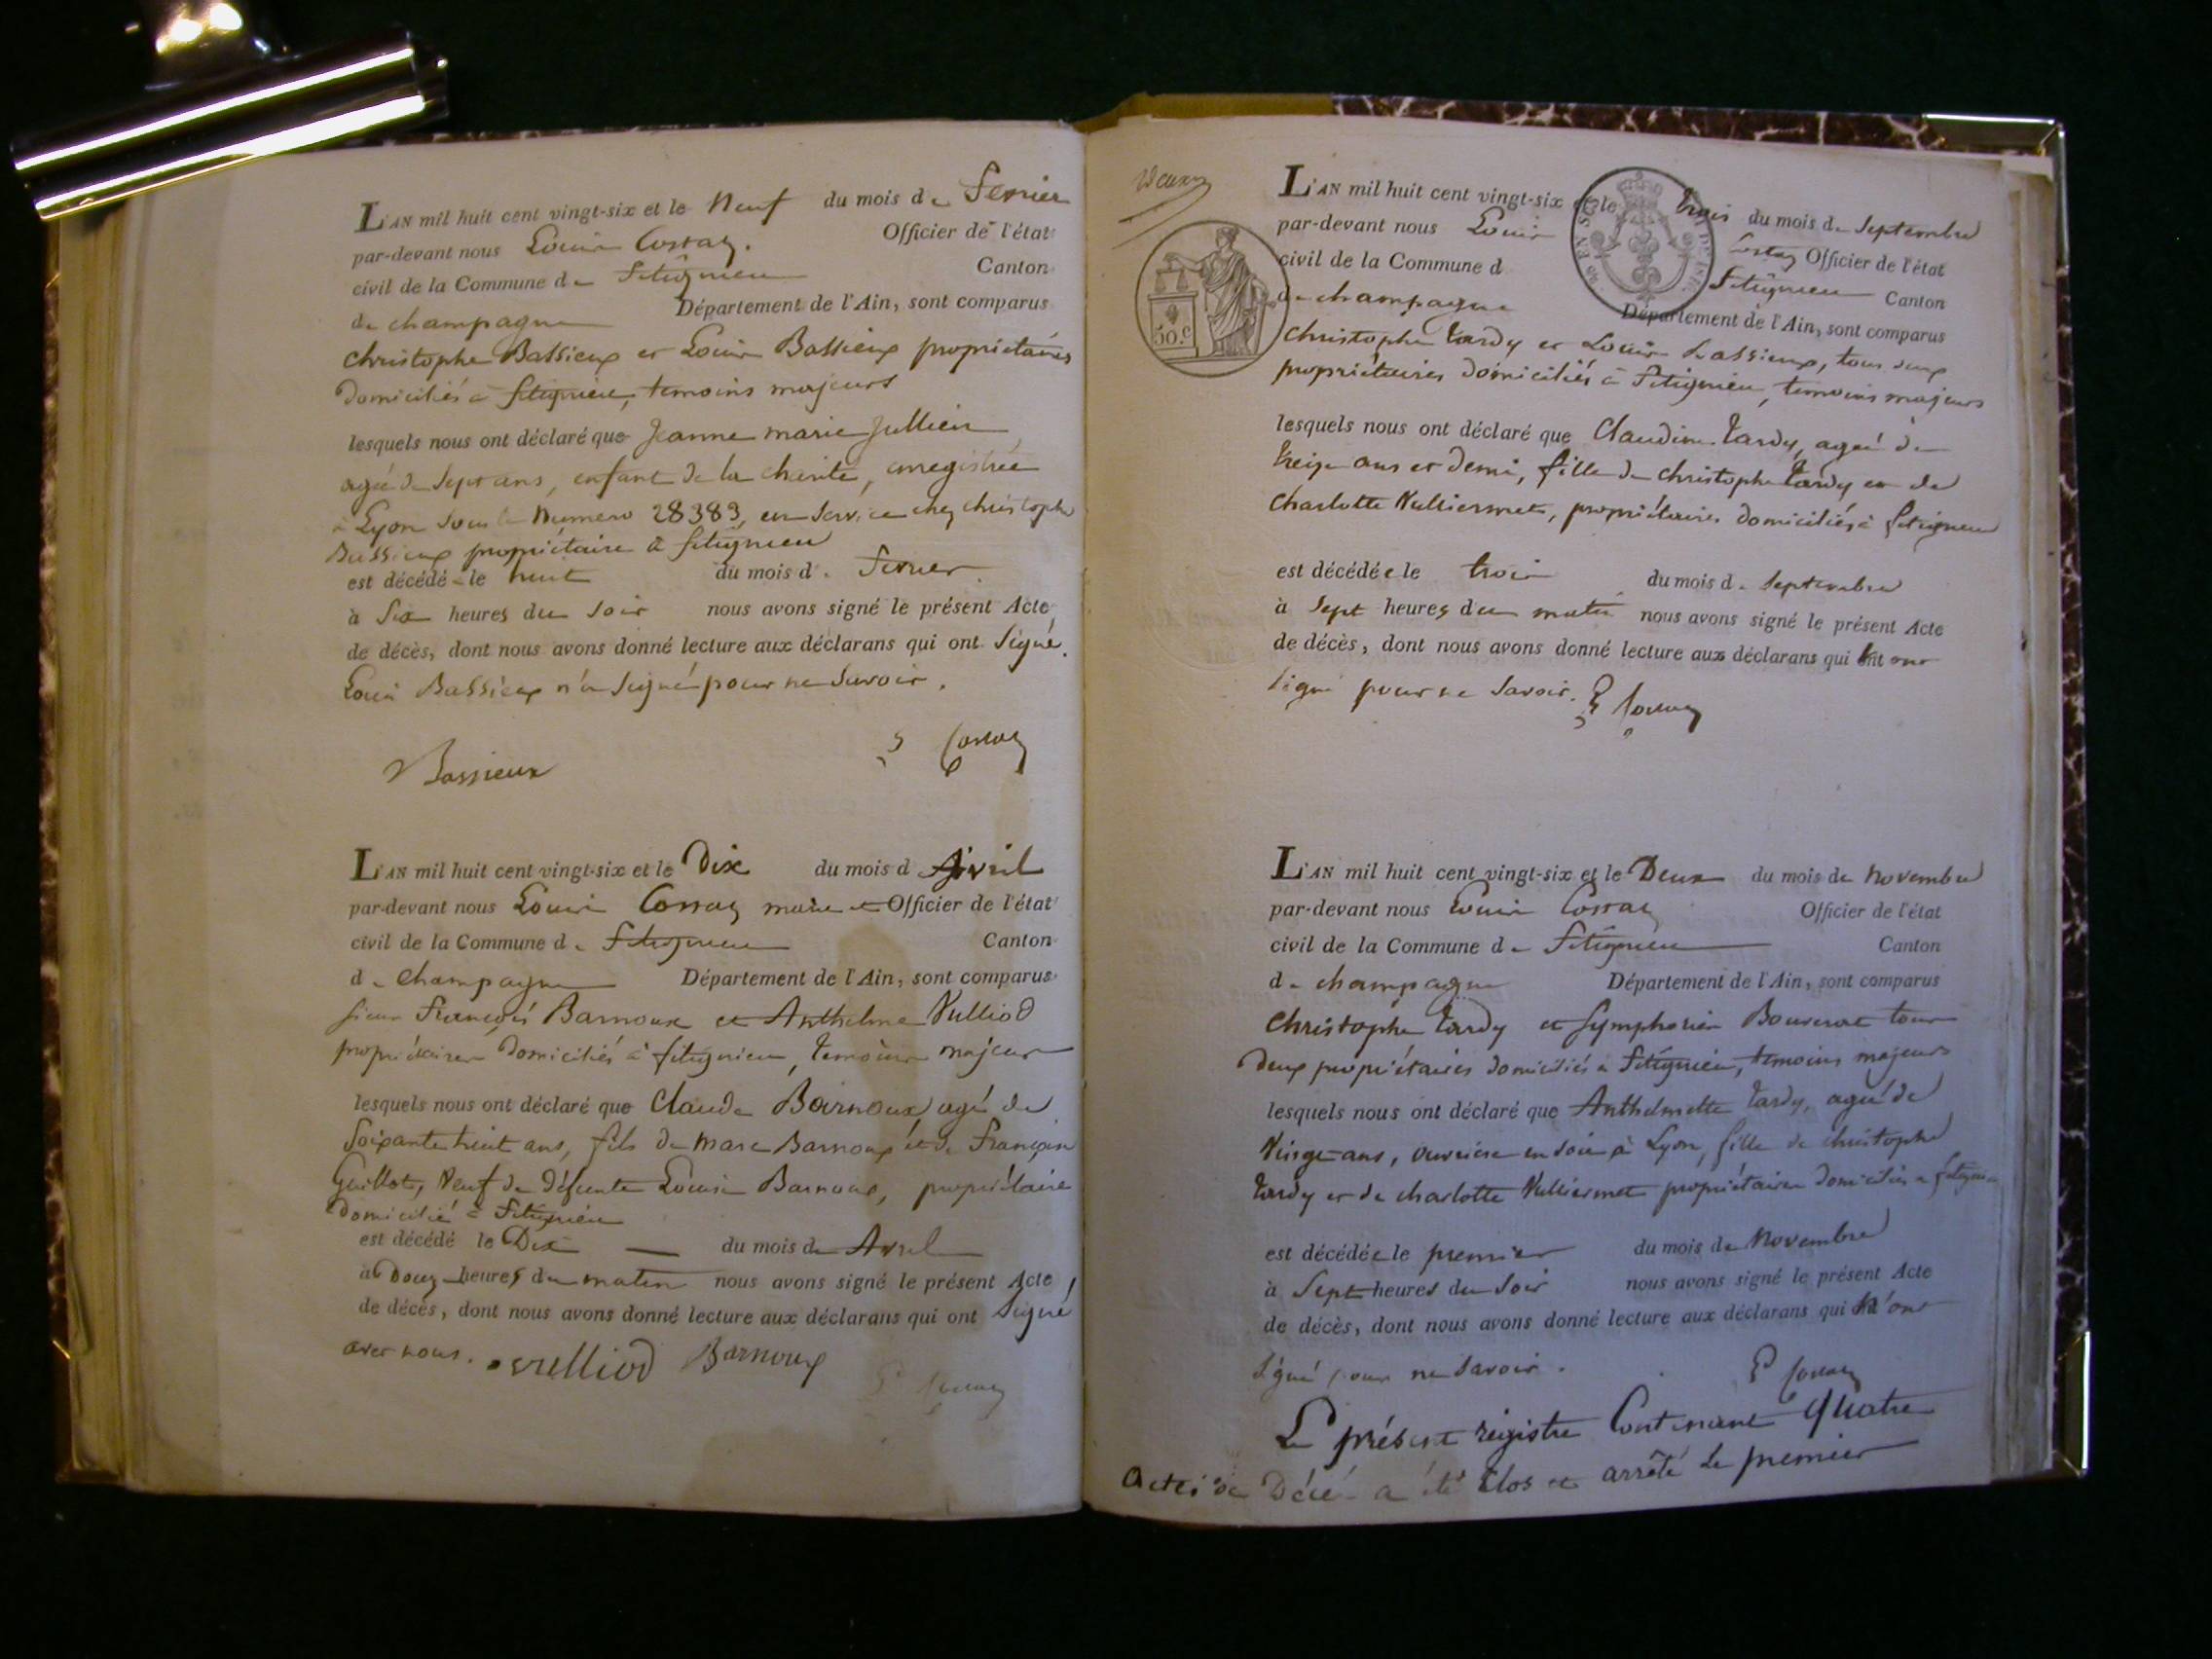 L'AN mil huit cent vingt-six et le Neuf du mois de Fevrier
par-devant nous Louis Costaz. Officier de l'état
civil de la Commune de Fitignieu Canton
de champagne Département de l'Ain, sont comparus
christophe Bassieux et Louis Bassieux propriétaires
domiciliés à fitignieu, temoins majeurs
lesquels nous ont déclaré que Jeanne marie Jullien
agée de Sept ans, enfant de la charité, enregistrée
à Lyon sous le Numero 28383, en service chez christophe
Bassieux propriétaire à fitignieu
est décédé e le huit du mois de Fevrier
à Six heures du soir nous avons signé le présent Acte
de décès, dont nous avons donné lecture aux déclarans qui ont signé.
Louis Bassieux n'a signé pour ne savoir.
Bassieux
Costaz
L'AN mil huit cent vingt-six et le Dix du mois d Avril
par-devant nous Louis Costaz maire et Officier de l'état
civil de la Commune de Fitignieu Canton
de Champagne Département de l'Ain, sont comparus
sieur François Barnoux et Anthelme Vulliod
propriétaires domiciliés à fitignieu, temoins majeurs
lesquels nous ont déclaré que Claude Barnoux agé de
soixante huit ans, fils de Marc Barnoux et de Françoise
Guillot, Veuf de défunte Louise Barnoux, propriétaire
domicilié à Fitignieu
est décédé le Dix du mois de Avril
à Douze heures du matin nous avons signé le présent Acte
de décès, dont nous avons donné lecture aux déclarans qui ont signé
avec nous. vulliod Barnoux
Costaz
Deux
L'AN mil huit cent vingt-six et le trois du mois de Septembre
par-devant nous Louis Costaz Officier de l'état
civil de la Commune d Fitignieu Canton
de champagne Département de l'Ain, sont comparus
50.c
christophe tardy et Louis Bassieux, tous deux
propriétaires domiciliés à Fitignieu, temoins majeurs
lesquels nous ont déclaré que Claudine tardy, agée de
treize ans et demi, fille de christophe tardy et de
Charlotte Vulliermet, propriétaires domiciliés à fitignieu
est décédée le trois du mois de Septembre
à Sept heures du matin nous avons signé le présent Acte
de décès, dont nous avons donné lecture aux déclarans qui n'ont
signé pour ne savoir. Costaz
L'AN mil huit cent vingt-six et le Deux du mois de Novembre
par-devant nous Louis Costaz Officier de l'état
civil de la Commune de Fitignieu Canton
de champagne Département de l'Ain, sont comparus
Christophe tardy et Symphorien Bouverat tous
deux propriétaires domiciliés à Fitignieu, temoins majeurs
lesquels nous ont déclaré que Anthelmette tardy, agée de
Vingt ans, ouvrière en soie à Lyon, fille de christophe
tardy et de charlotte Vulliermet propriétaires domiciliés à fitignieu
est décédée le premier du mois de Novembre
à Sept heures du soir nous avons signé le présent Acte
de décès, dont nous avons donné lecture aux déclarans qui n'ont
signé pour ne savoir. Costaz
Le présent registre Contenant quatre
actes de Décé a été clos et arrêté le premier